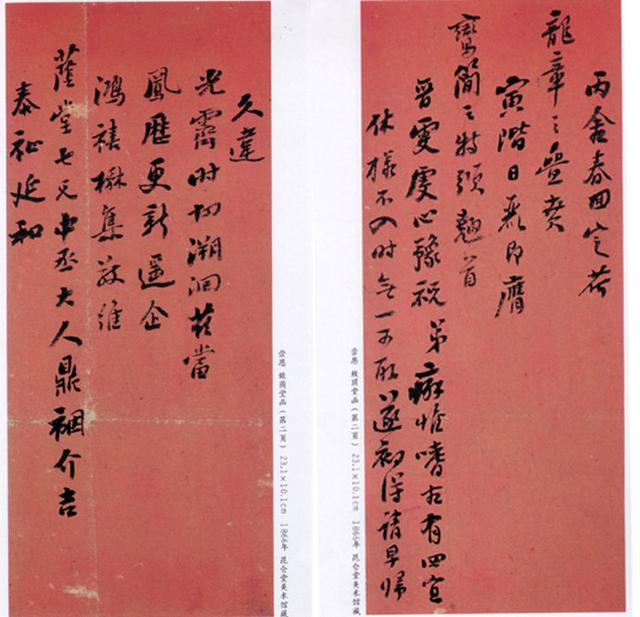 久違
光霽時切溯洄茲當
鳳曆更新遥企
鴻禧楙集敬維
蔭堂七兄中丞大人鼎裀介吉
泰祉延和
崇恩 致荫堂函（第二頁） 23.1×10.1cm 1866年 昆仑堂美术馆藏
丙舍春回定荷
龍章之疊賁
寅階日麗即膺
鸞簡之特頒翹首
晉雯慶心豫祝 弟癖惟嗜古有四宜
休樣不入時無一可取遂初得請早歸
崇恩 致荫堂函（第二頁） 23.1×10.1cm 1866年 昆仑堂美术馆藏